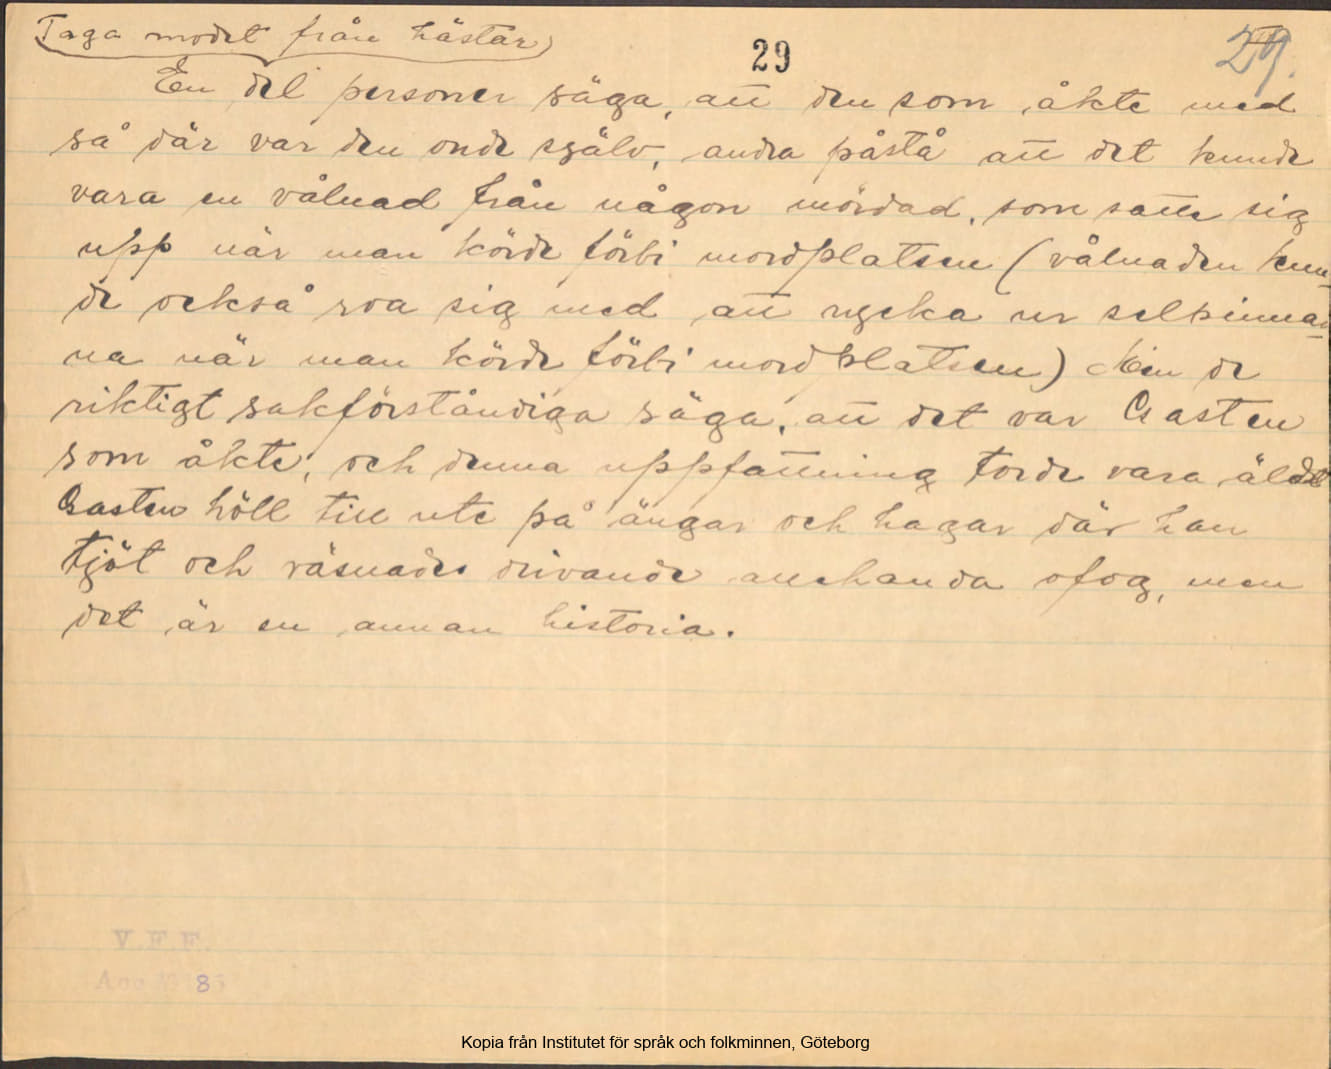 Taga modet från hästar
29
29.
En del personer säga, att den som åkte med
så där var den onde själv, andra påstå att det kunde
vara en vålnad från någon mördad, som satte sig
upp när man körde förbi mordplatsen (vålnaden kun-
de också roa sig med att rycka ur selpinnar-
na när man körde förbi mordplatsen) Men de
riktigt sakförståndiga säga, att det var Gasten
som åkte, och denna uppfattning torde vara äldst
Gasten höll till ute på ängar och hagar där han
tjöt och väsnades drivande allehanda ofog, men
det är en annan historia.
V.F.F.
Kopia från Institutet för språk och folkminnen, Göteborg